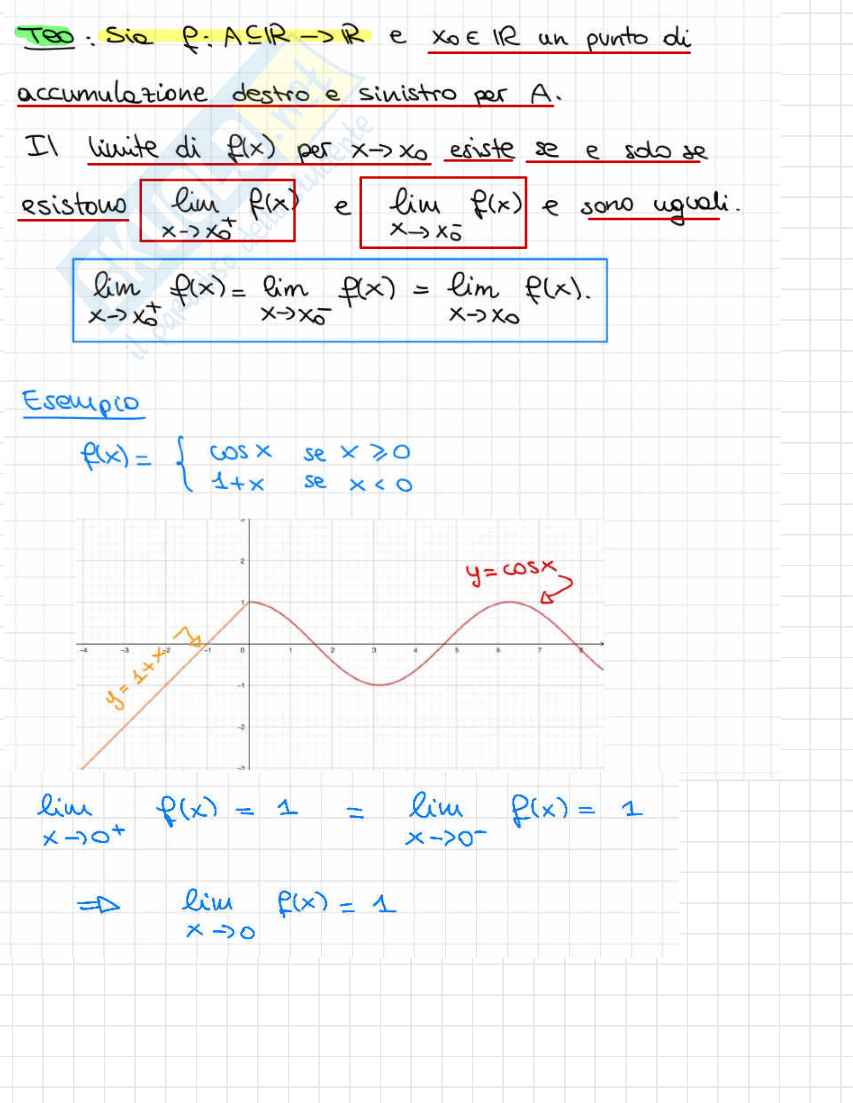 Teo: Sia f: A⊆ℝ → ℝ e x₀ ∈ ℝ un punto di
accumulazione destro e sinistro per A.
Il limite di f(x) per x→x₀ esiste se e solo se
esistono lim x→x₀⁺ f(x) e lim x→x₀⁻ f(x) e sono uguali.
lim x→x₀⁺ f(x) = lim x→x₀⁻ f(x) = lim x→x₀ f(x).
Esempio
f(x) = { cos x se x ⩾ 0
1+x se x < 0
3
2
y = cosx
1
-4 -3 -2 -1 0 1 2 3 4 5 6 7 8
y = 1+x
-1
-2
-3
lim x→0⁺ f(x) = 1 = lim x→0⁻ f(x) = 1
⇒ lim x→0 f(x) = 1